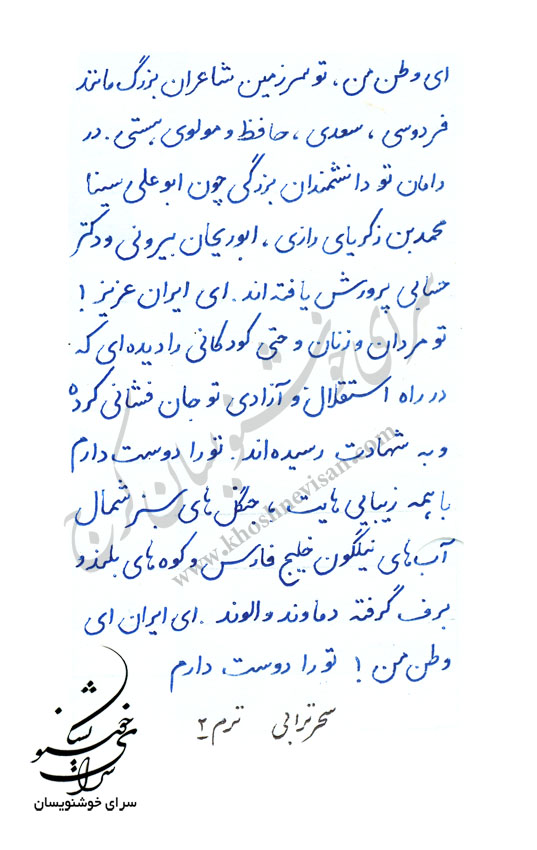 ای وطن من ، تو سرزمین شاعران بزرگ مانند
فردوسی ، سعدی ، حافظ و مولوی هستی . در
دامان تو دانشمندان بزرگی چون ابوعلی سینا
محمدبن زکریای رازی ، ابوریحان بیرونی و دکتر
حسابی پرورش یافته اند . ای ایران عزیز !
تو مردان و زنان و حتی کودکانی را دیده ای که
در راه استقلال و آزادی تو جان فشانی کرده
و به شهادت رسیده اند . تو را دوست دارم
با همه زیبایی هایت ، جنگل های سبز شمال
آب های نیلگون خلیج فارس و کوه های بلند و
برف گرفته دماوند و الوند . ای ایران ای
وطن من ! تو را دوست دارم
سحر ترابی ترم ۲
سرای خوشنویسان
www.khoshnevisan.com